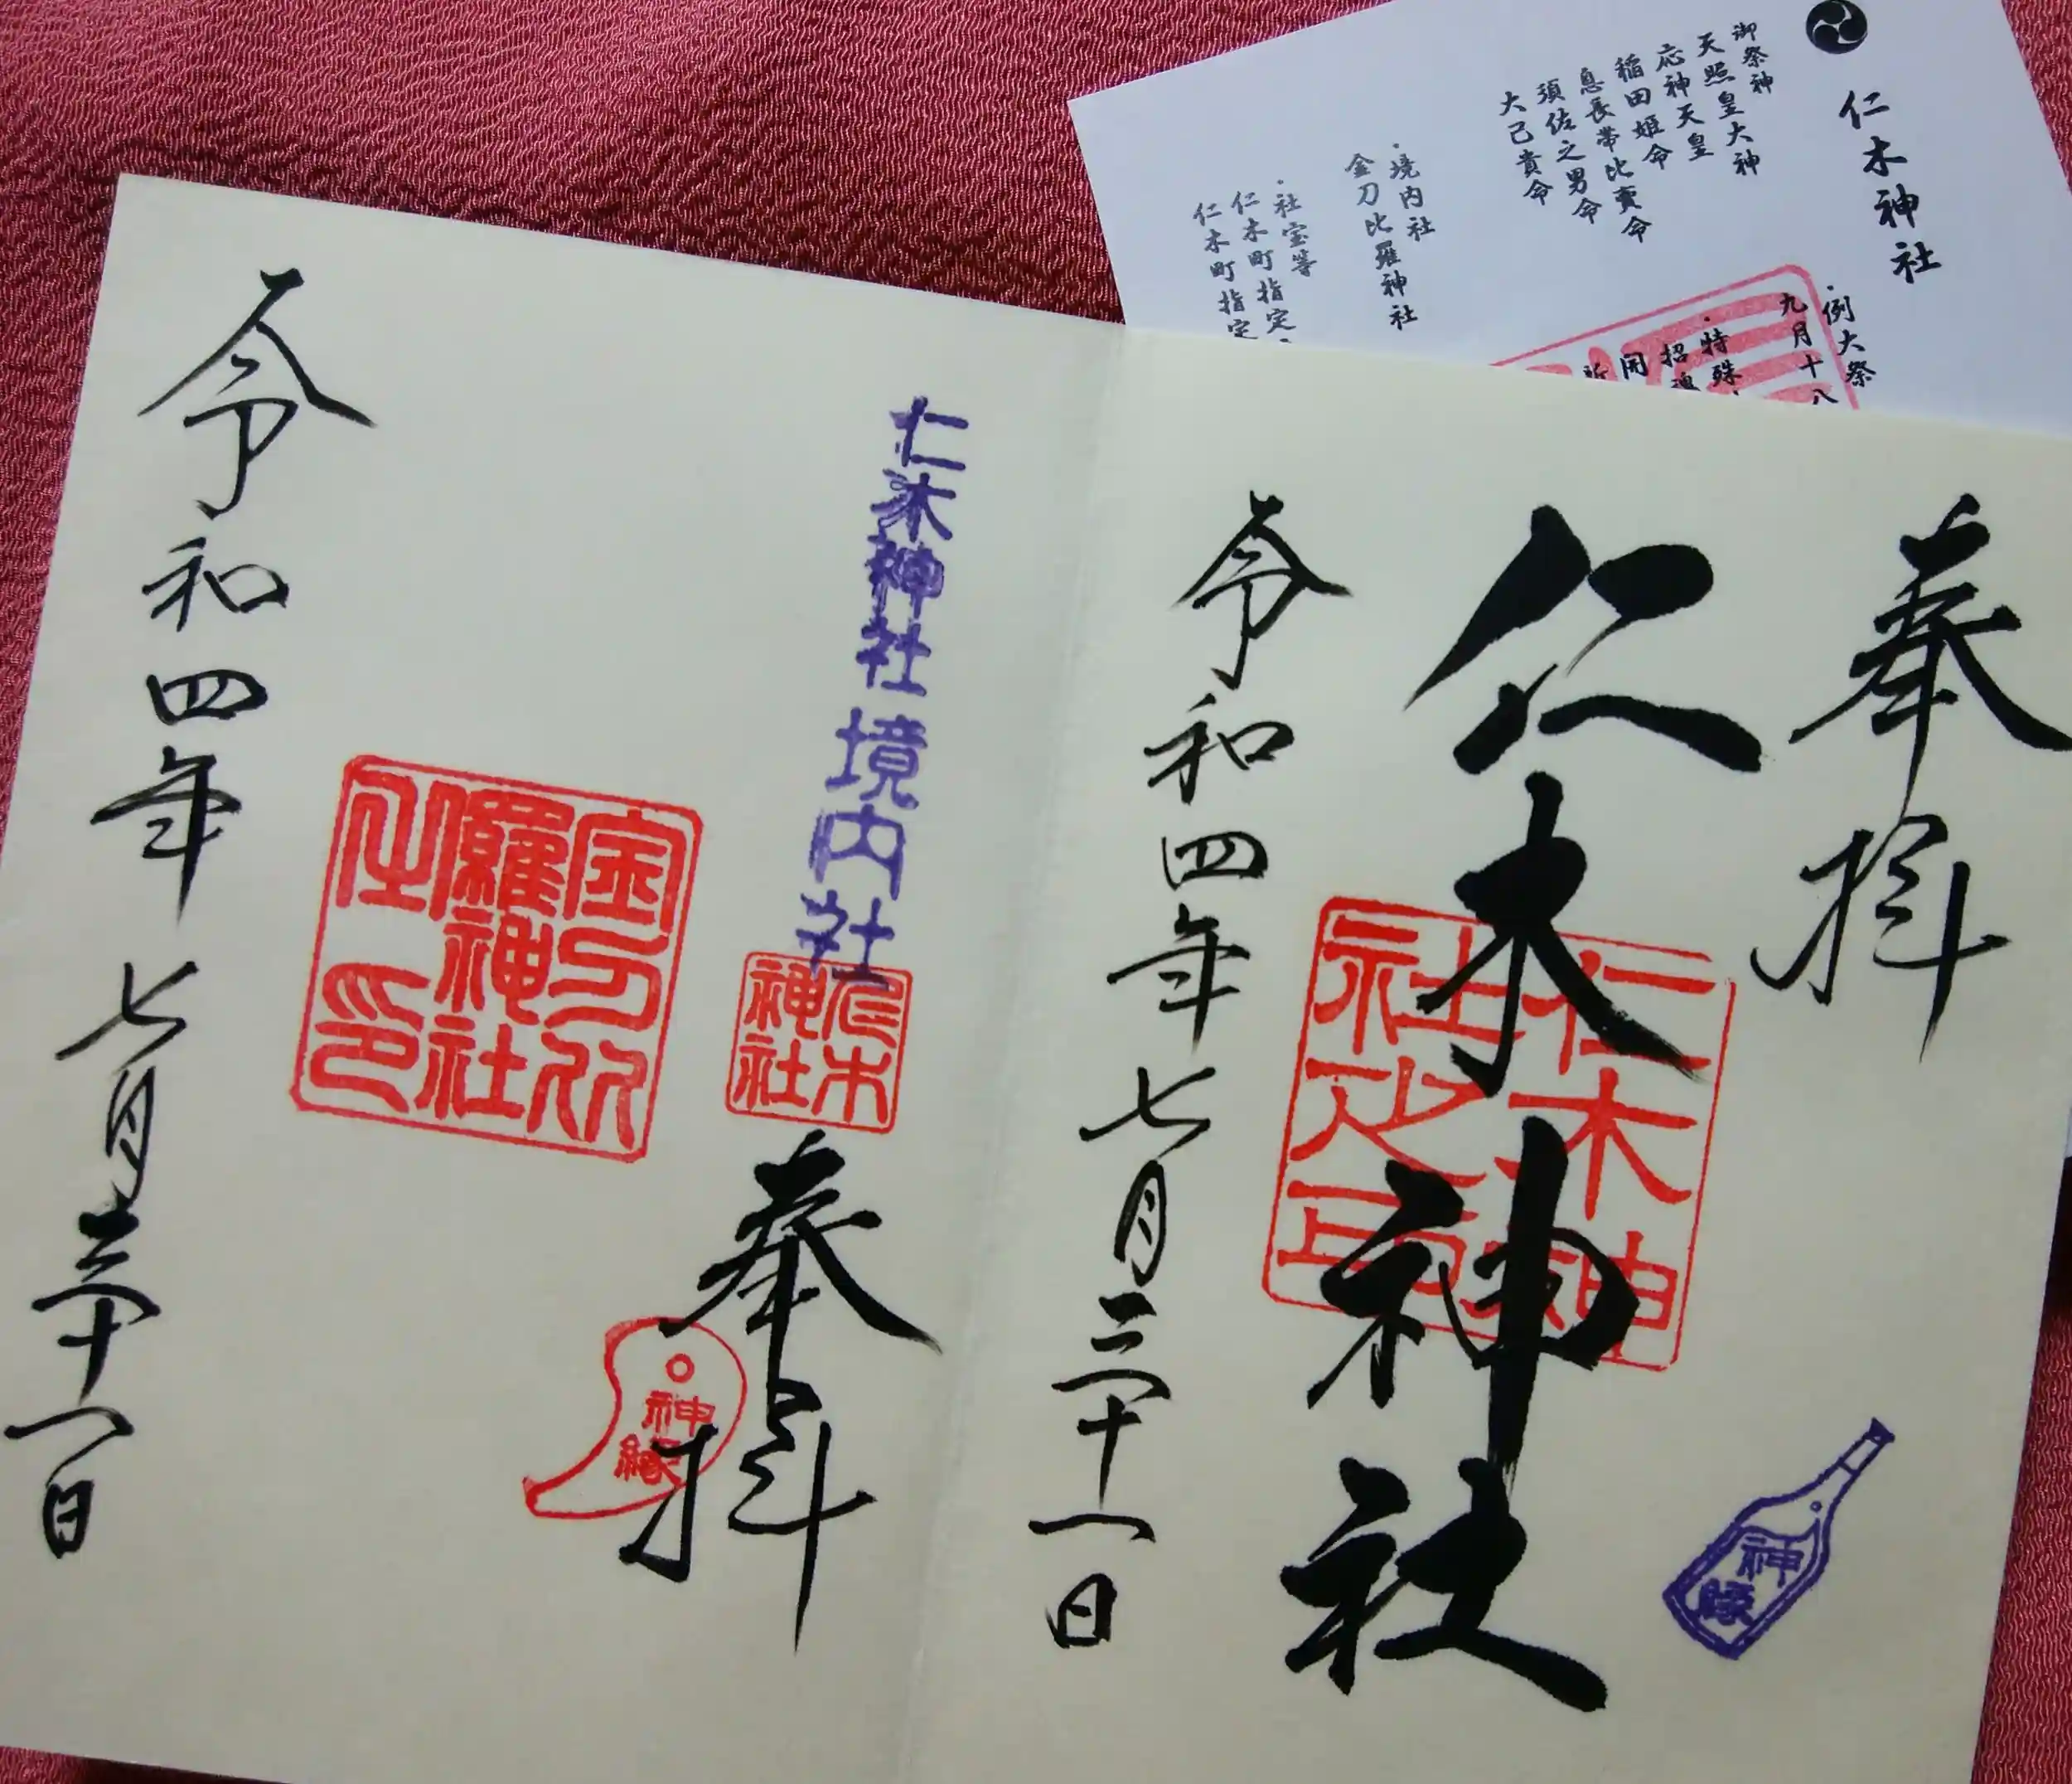 仁木神社
御祭神
天照皇大神
応神天皇
稲田姫命
息長帯比売命
須佐之男命
大己貴命
・境内社
金刀比羅神社
・社宝等
仁木町指定
仁木町指定
・例大祭
九月十八
・特殊
招魂
開
祈
奉拝
仁木神社
仁木神社之印
令和四年七月三十一日
神縁
仁木神社境内社
仁木神社
奉拝
神縁
金刀比羅神社之印
令和四年七月三十一日